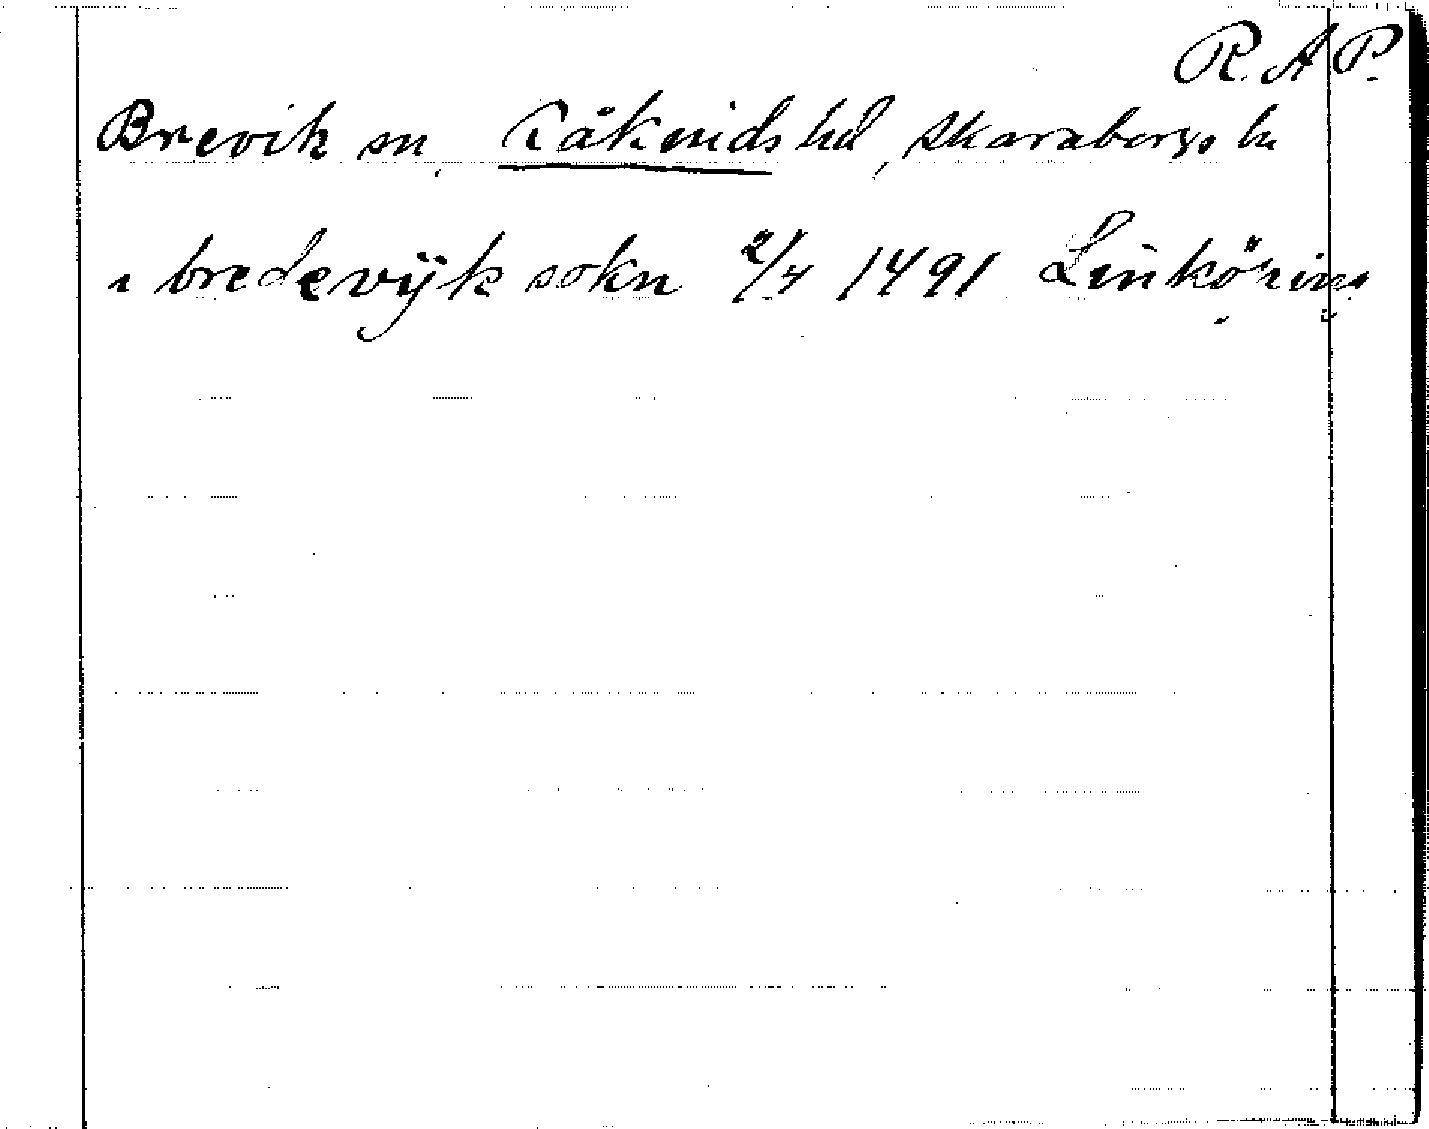 R.A.P.
Brevik sn, Råknids hd, Skaraborgs län
i bredevÿk sokn 2/4 1491 Linköping